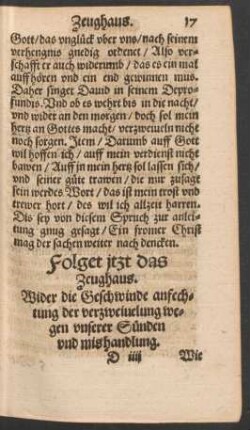 Zeughaus. 17
Gott/das vnglück vber vns/nach seinem
verhengnis gnedig ordenet/Also ver-
schafft er auch widerumb/das es ein mal
auffhören vnd ein end gewinnen mus.
Daher singet Dauid in seinem Depro-
fundis. Vnd ob es wehrt bis in die nacht/
vnd wider an den morgen/doch sol mein
hertz an Gottes macht/verzweiueln nicht
noch sorgen. Item/Darumb auff Gott
wil hoffen ich/auff mein verdienst nicht
bawen/Auff jn mein hertz sol lassen sich/
vnd seiner güte trawen/die mir zusagt
sein werdes Wort/das ist mein trost vnd
trewer hort/des wil ich allzeit harren.
Dis sey von diesem Spruch zur anlei-
tung gnug gesagt/Ein fromer Christ
mag der sachen weiter nach dencken.
Folget jtzt das
Zeughaus.
Wider die Geschwinde anfech-
tung der verzweiuelung we-
gen vnserer Sünden
vnd mishandlung.
D iiij Wie